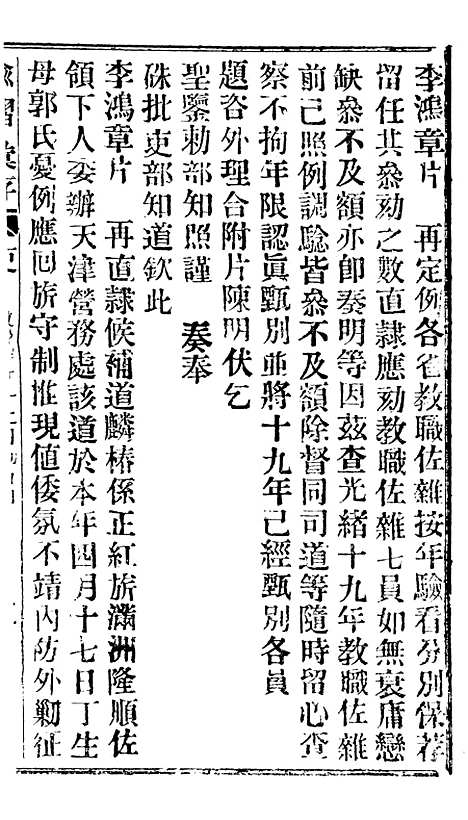 李鴻章片　再定例各省敎職佐雜按年驗看分別保荐
留任其叅劾之數直隷應劾敎職佐雜七員如無衰庸戀
缺叅不及額亦卽奏明等因茲查光緒十九年敎職佐雜
前已照例調驗皆叅不及額除督同司道等隨時留心查
察不拘年限認眞甄別並將十九年已經甄別各員
題咨外理合附片陳明伏乞
聖鑒勅部知照謹　奏奉
硃批吏部知道欽此
李鴻章片　再直隷候補道麟椿係正紅旂滿洲隆順佐
領下人委辦天津營務處該道於本年四月十七日丁生
母郭氏憂例應回旂守制惟現值倭氛不靖內防外勦征
諭摺彙存